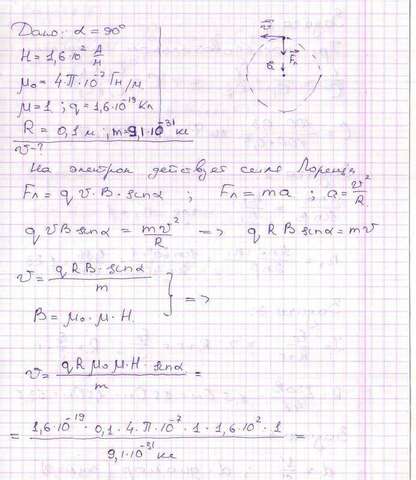 Дано: α = 90°
H = 1,6·10² А/м
μ₀ = 4·π·10⁻⁷ Гн/м.
μ = 1 ; q = 1,6·10⁻¹⁹ Кл
R = 0,1 м ; m = 9,1·10⁻³¹ кг
v - ?
v
Fл
a
На электрон действует сила Лоренца
Fл = q v · B · sinα ; Fл = ma ; a = v²/R
q v B sinα = mv²/R —> q R B sinα = mv
v = q R B · sinα / m
B = μ₀ · μ · H. } =>
v = q R μ₀ μ · H · sinα / m =
= 1,6·10⁻¹⁹ · 0,1 · 4·π·10⁻⁷ · 1 · 1,6·10² · 1 / 9,1·10⁻³¹ кг =